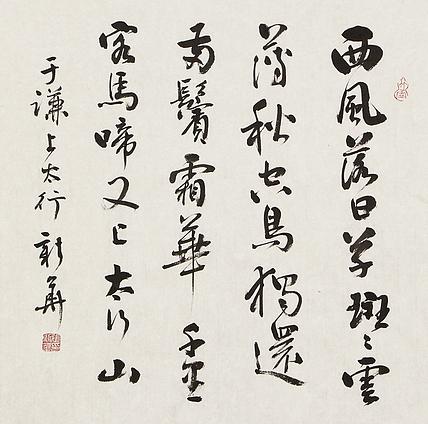 西風落日草斑〻雲
薄秋空鳥獨還
兩鬢霜華千里
客馬啼又上太行山
于謙上太行 新華